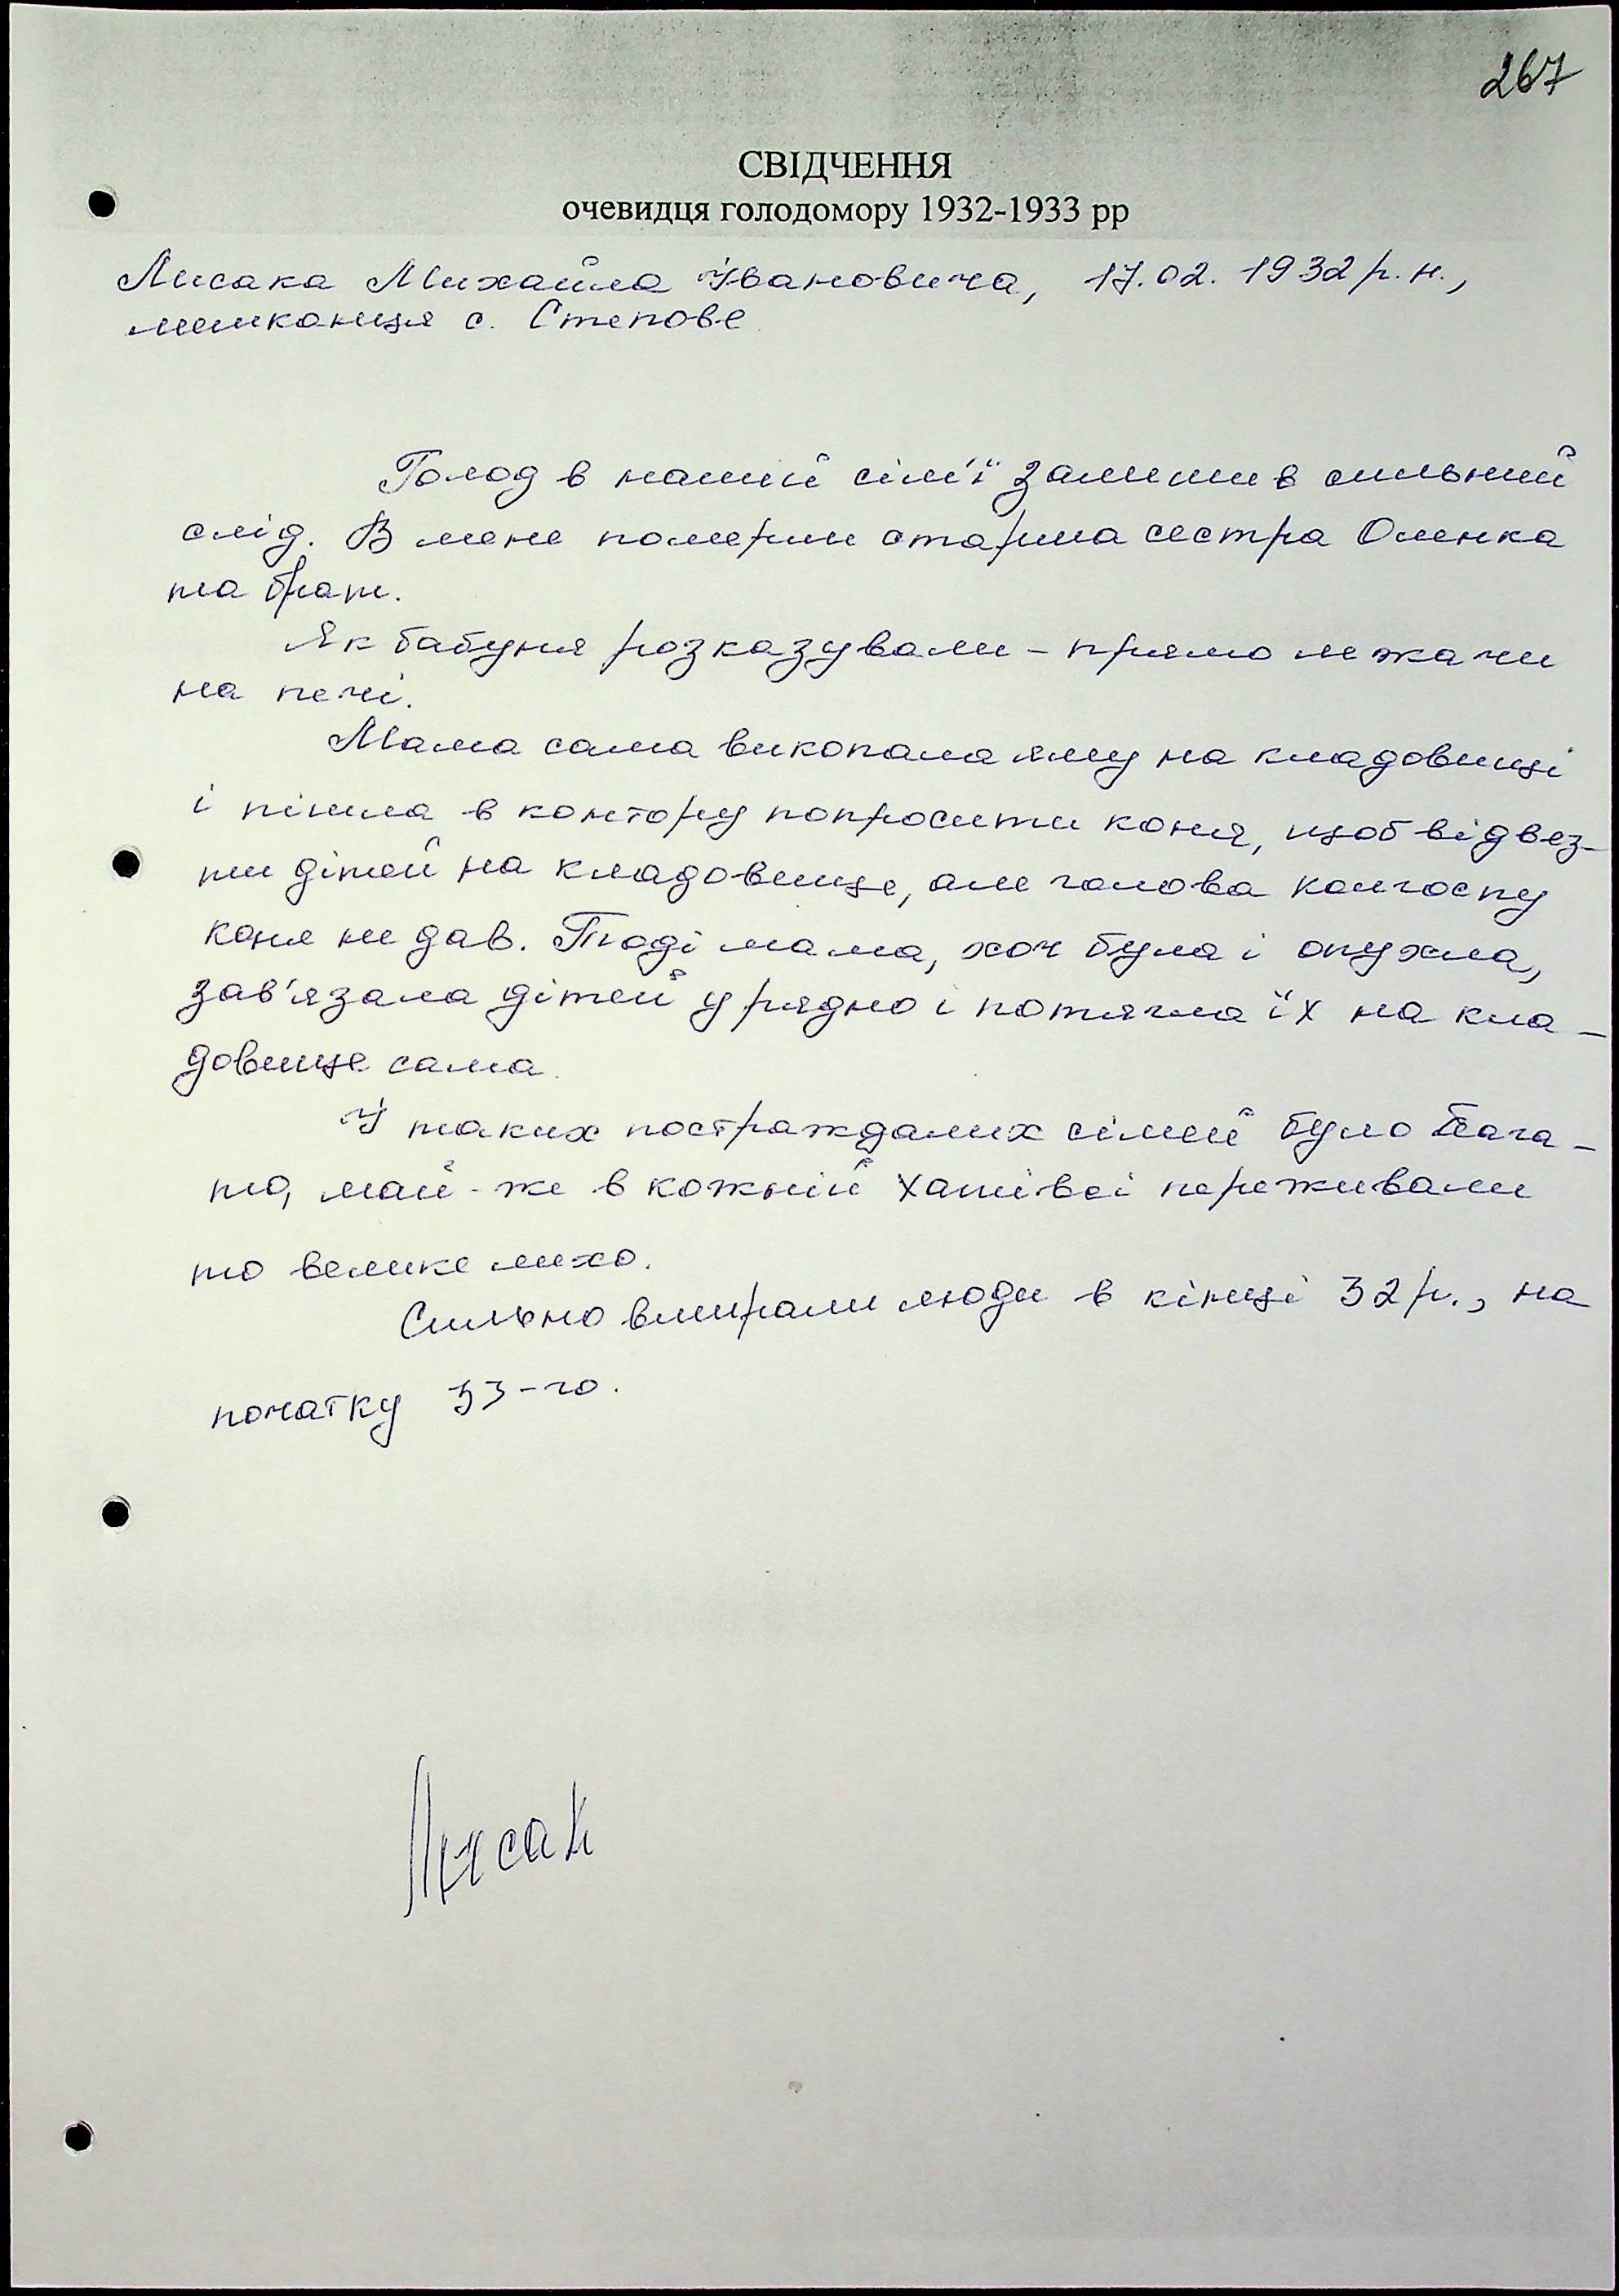 267
СВІДЧЕННЯ
очевидця голодомору 1932-1933 рр
Лисака Михайла Івановича, 17.02.1932 р.н.,
мешканця с. Степове
Голод в нашій сім'ї залишив сильний
слід. В мене померли старша сестра Оленка
та брат.
Як бабуня розказували - прямо лежачи
на печі.
Мама сама викопала яму на кладовищі
і пішла в контору попросити коня, щоб відвез-
ти дітей на кладовище, але голова колгоспу
коня не дав. Тоді мама, хоч була і опухла,
зав'язала дітей у рядно і потягла їх на кла-
довище сама.
І таких постраждалих сімей було бага-
то, май-же в кожній хаті всі переживали
то велике лихо.
Сильно вмирали люди в кінці 32 р., на
початку 33-го.
Лисак